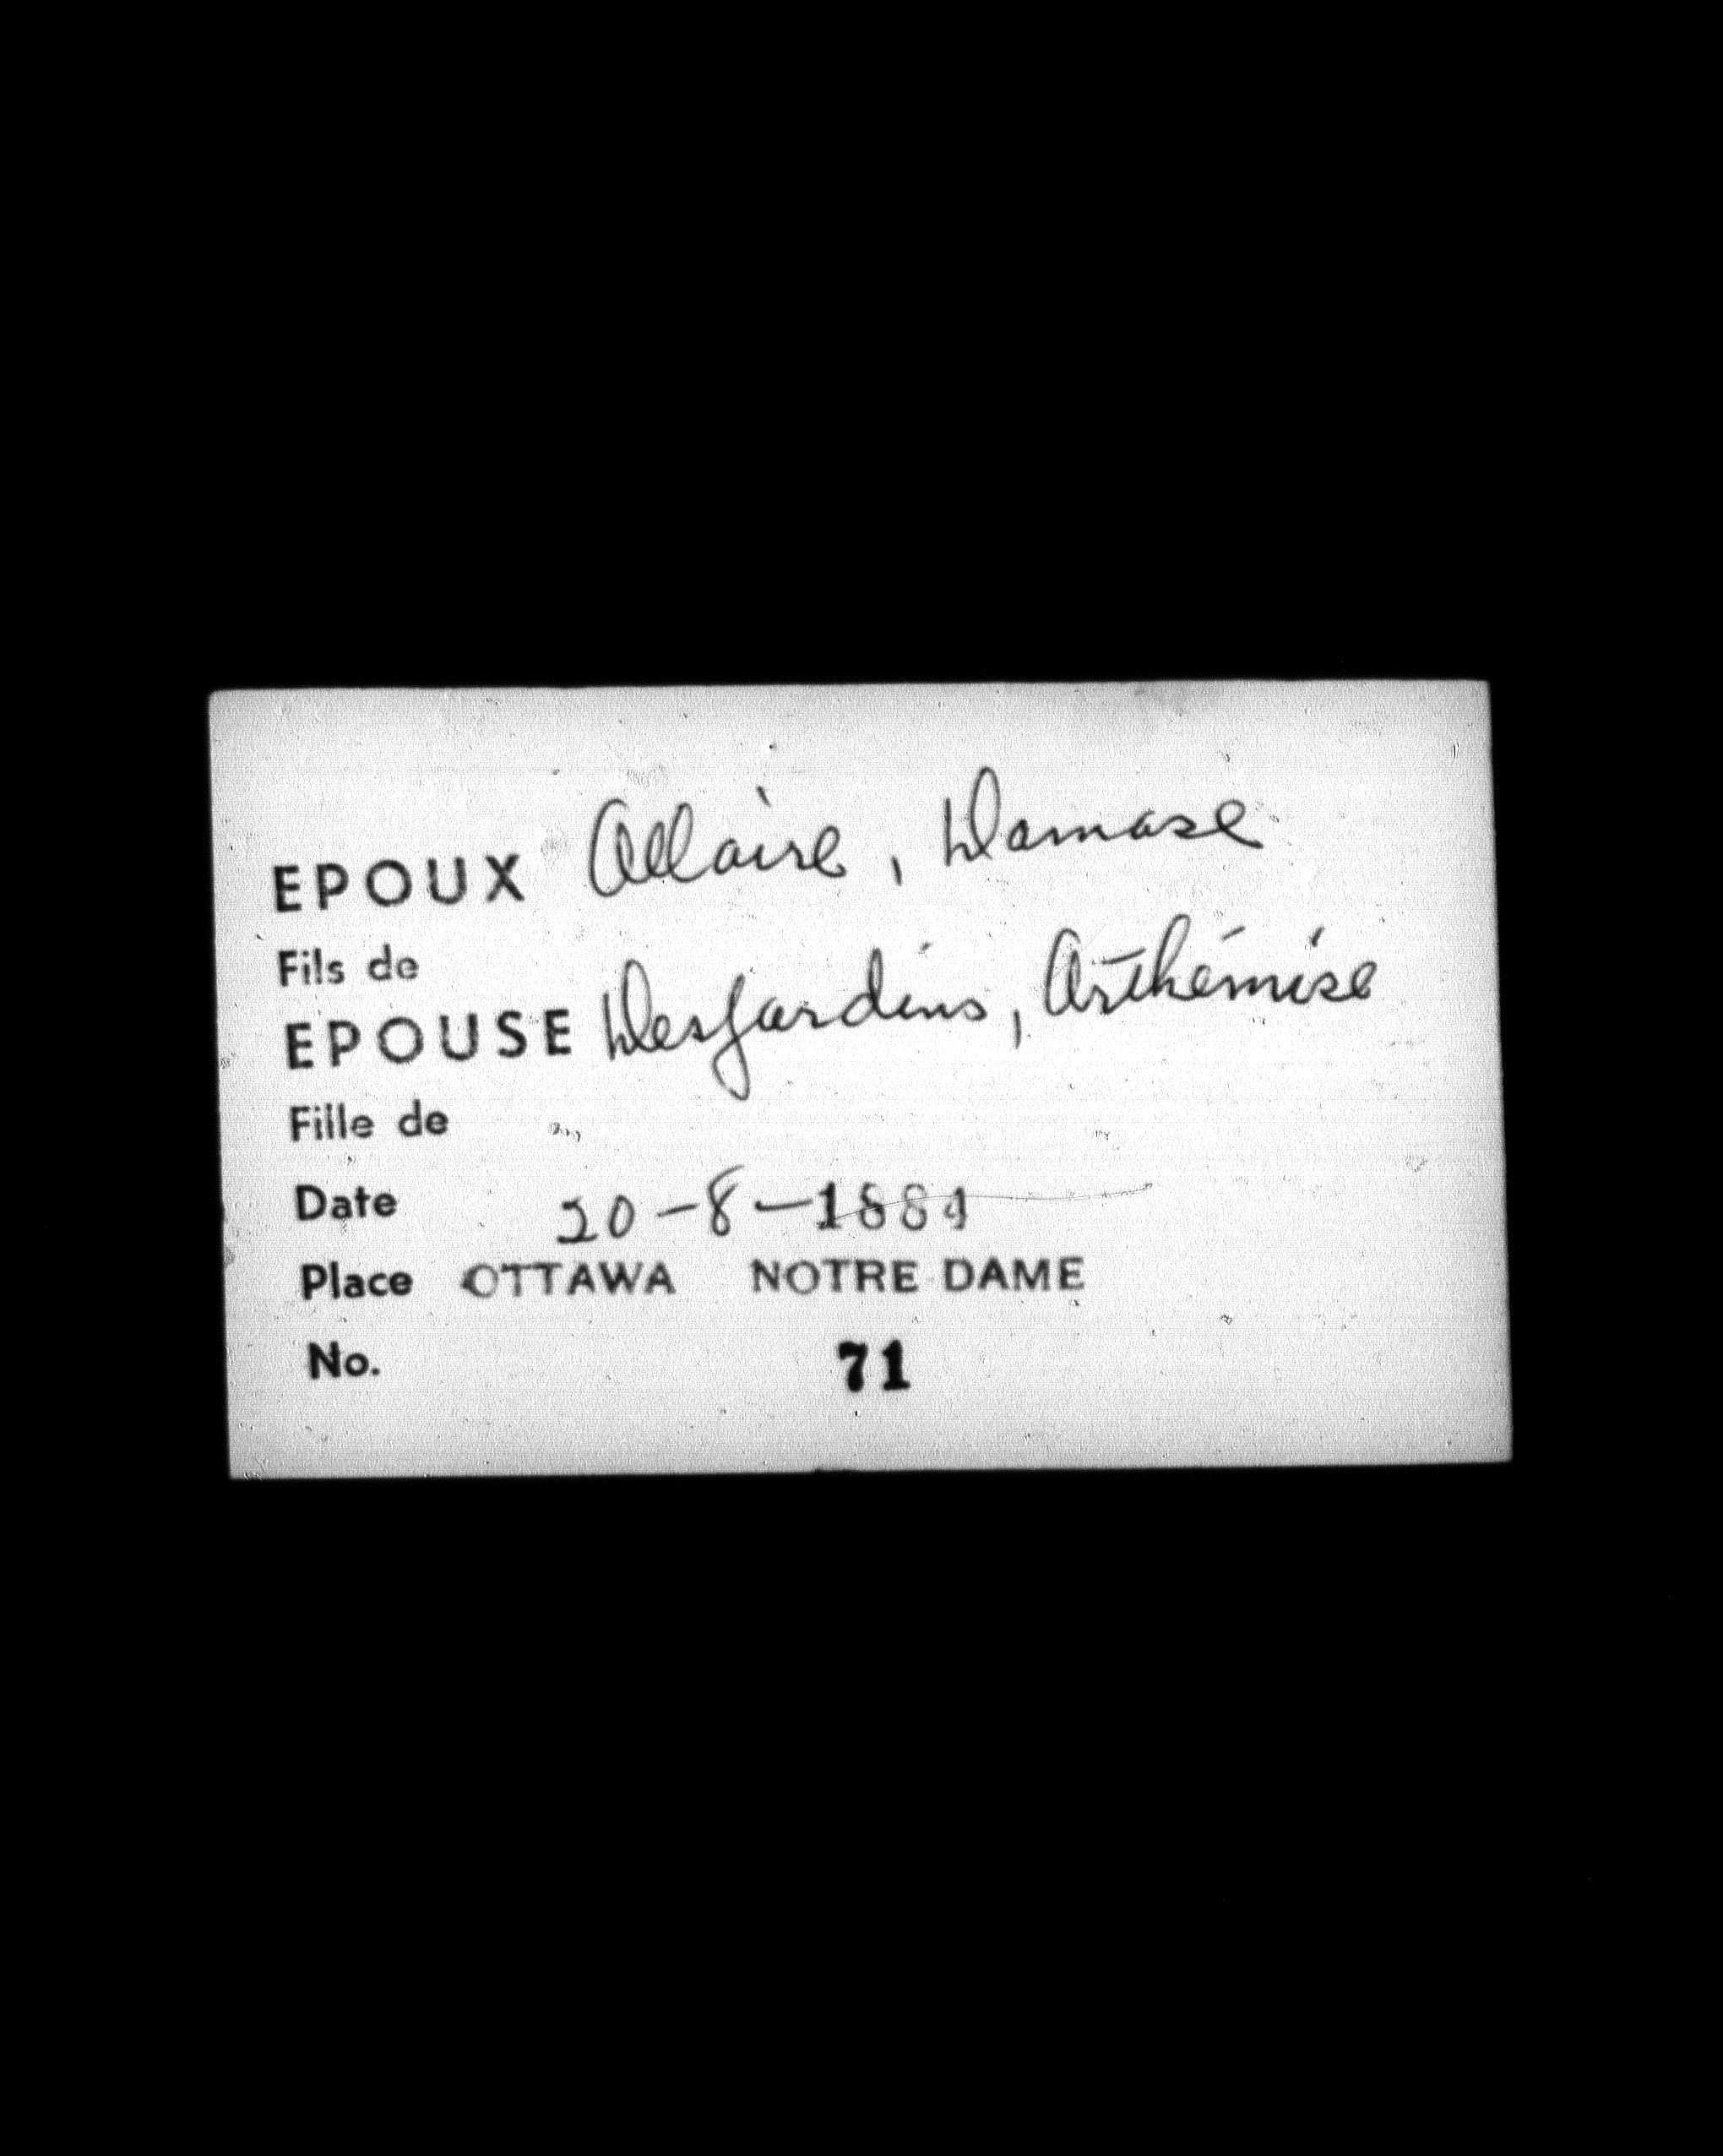 EPOUX Allaire, Damase
Fils de
EPOUSE Desjardins, Arthémise
Fille de
Date 20-8-1884
Place OTTAWA NOTRE DAME
No. 71